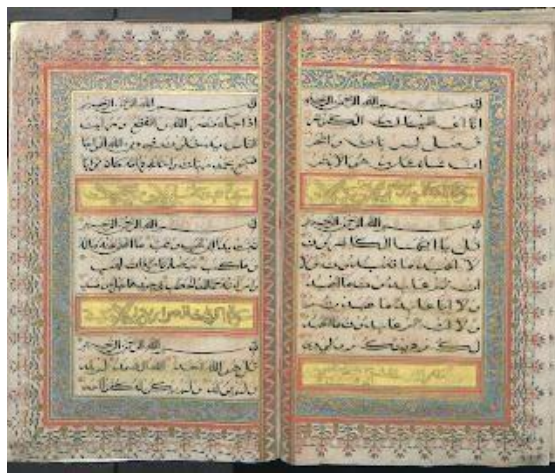 بسم الله الرحمن الرحيم
انا اعطيناك الكوثر
فصل لربك وانحر
ان شانئك هو الابتر
بسم الله الرحمن الرحيم
قل يا ايها الكافرون
لا اعبد ما تعبدون ولا
انتم عابدون ما اعبد
ولا انا عابد ما عبدتم
ولا انتم عابدون ما اعبد
لكم دينكم ولي دين
بسم الله الرحمن الرحيم
اذا جاء نصر الله والفتح ورايت
الناس يدخلون في دين الله افواجا
فسبح بحمد ربك واستغفره انه كان توابا
بسم الله الرحمن الرحيم
تبت يدا ابي لهب وتب ما اغنى عنه ماله
وما كسب سيصلى نارا ذات لهب
وامراته حمالة الحطب في جيدها حبل من مسد
بسم الله الرحمن الرحيم
قل هو الله احد الله الصمد لم يلد
ولم يولد ولم يكن له كفوا احد